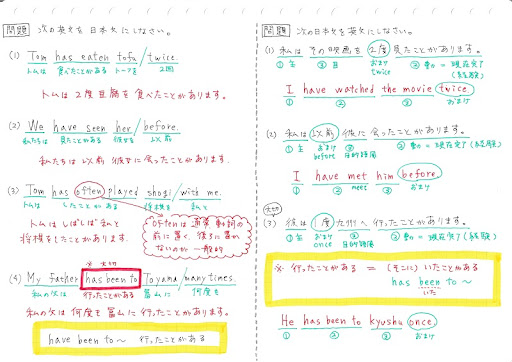 問題 次の英文を日本文にしなさい。
(1) Tom has eaten tofu / twice.
トムは 食べたことがある トーフを 2回
トムは2度豆腐を食べたことがあります。
(2) We have seen her / before.
私たちは 見たことがある 彼女を 以前
私たちは以前彼女に会ったことがあります。
(3) Tom has often played shogi / with me.
トムは したことがある 将棋を 私と
トムはしばしば私と
将棋をしたことがあります。
oftenは通常動詞の
前に置く。後ろに置か
ないのが一般的
※大切
(4) My father has been to Toyama / many times.
私の父は 行ったことがある 富山に 何度も
私の父は何度も富山に行ったことがあります。
have been to~ 行ったことがある
問題 次の日本文を英文にしなさい。
(1) 私は その映画を 2度 見たことがあります。
①主 ③目 おまけ ②動=現在完了
twice (経験)
I have watched the movie twice.
① ② ③ おまけ
(2) 私は 以前 彼に会ったことがあります。
①主 おまけ ②動=現在完了(経験)
before 目的語③
I have met him before.
① ② meet ③ おまけ
大切
(3) 彼は 1度 九州へ行ったことがあります。
①主 おまけ ②動=現在完了(経験)
once
※ 行ったことがある = (そこに)いたことがある
has been to~
いた
He has been to kyushu once.
① ② ③ おまけ